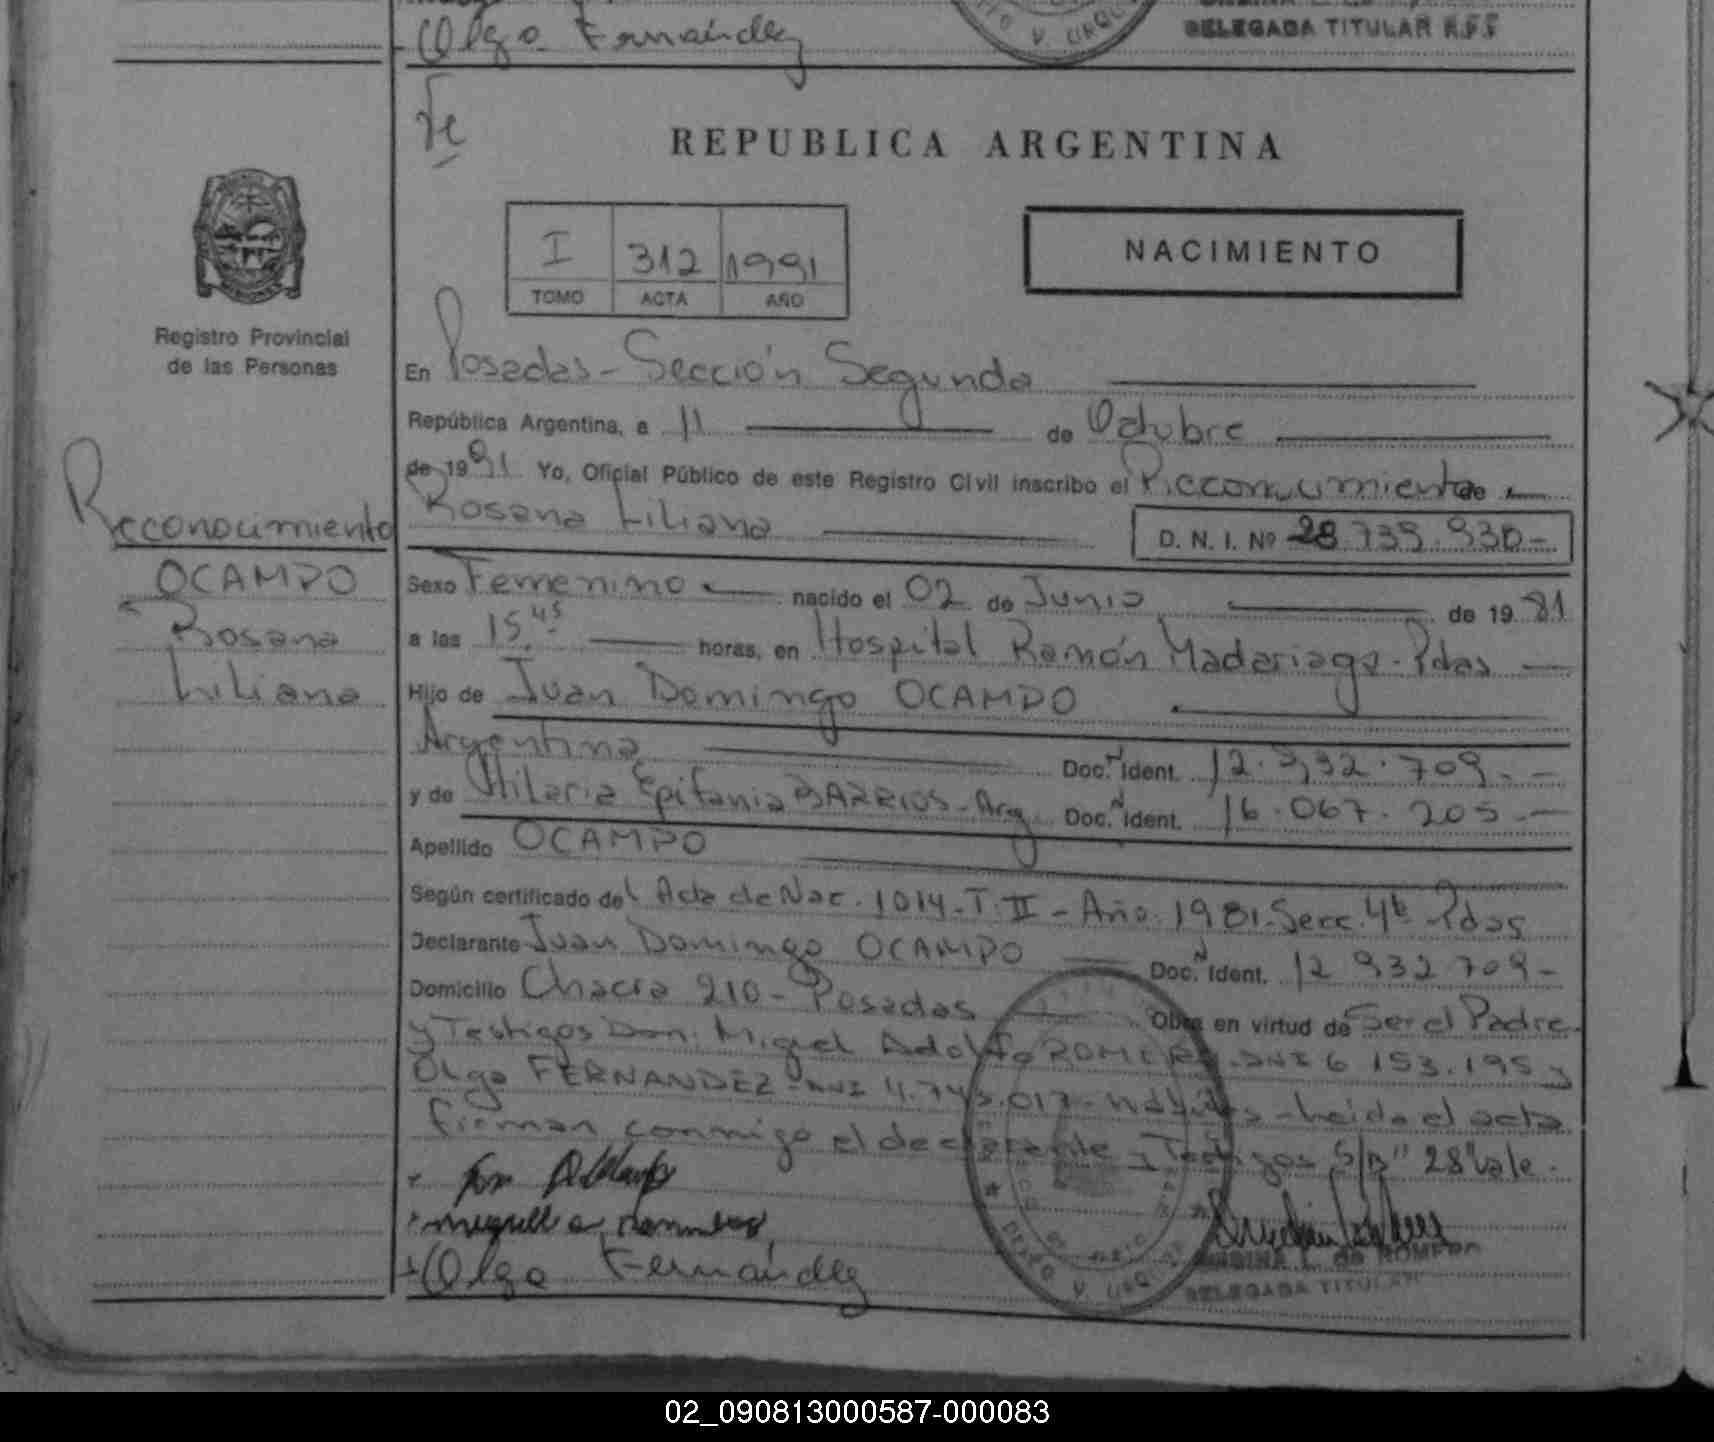 Olga Fernández
DELEGADA TITULAR R.P.P.
REPUBLICA ARGENTINA
I 312 1991
TOMO ACTA AÑO
NACIMIENTO
Registro Provincial
de las Personas
En Posadas - Sección Segunda
República Argentina, a 11 de Octubre
de 1991 Yo, Oficial Público de este Registro Civil inscribo el Reconocimiento de
Rosana Liliana D. N. I. Nº 28.739.930-
Reconocimiento
OCAMPO
Rosana
Liliana
Sexo Femenino nacido el 02 de Junio de 1981
a las 15,45 horas, en Hospital Ramón Madariaga - Pdas
Hijo de Juan Domingo OCAMPO
Argentina Doc. Ident. 12.932.709.-
y de Hilaria Epifania BARRIOS - Arg Doc. Ident. 16.067.205.-
Apellido OCAMPO
Según certificado del Acta de Nac. 1014 - T. II - Año: 1981 - Secc. 4ta Pdas
Declarante Juan Domingo OCAMPO Doc. Ident. 12 932 709-
Domicilio Chacra 210 - Posadas Obra en virtud de Ser el Padre
y Testigos Don: Miguel Adolfo ROMERO - DNI 6 153.195 y
Olga FERNANDEZ - DNI 4.745.017 - hábiles - Leída el acta
firman conmigo el declarante y Testigos S/R "28" Vale.
Olga Fernández
L. de ROMERO
DELEGADA TITULAR
02_090813000587-000083